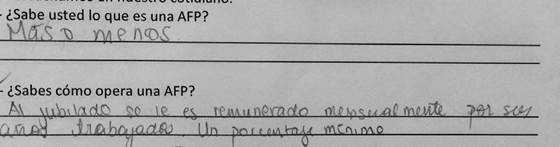 - ¿Sabe usted lo que es una AFP?
Mas o menos.
- ¿Sabes cómo opera una AFP?
Al jubilado se le es remunerado mensualmente por sus
años trabajados. Un porcentaje mínimo